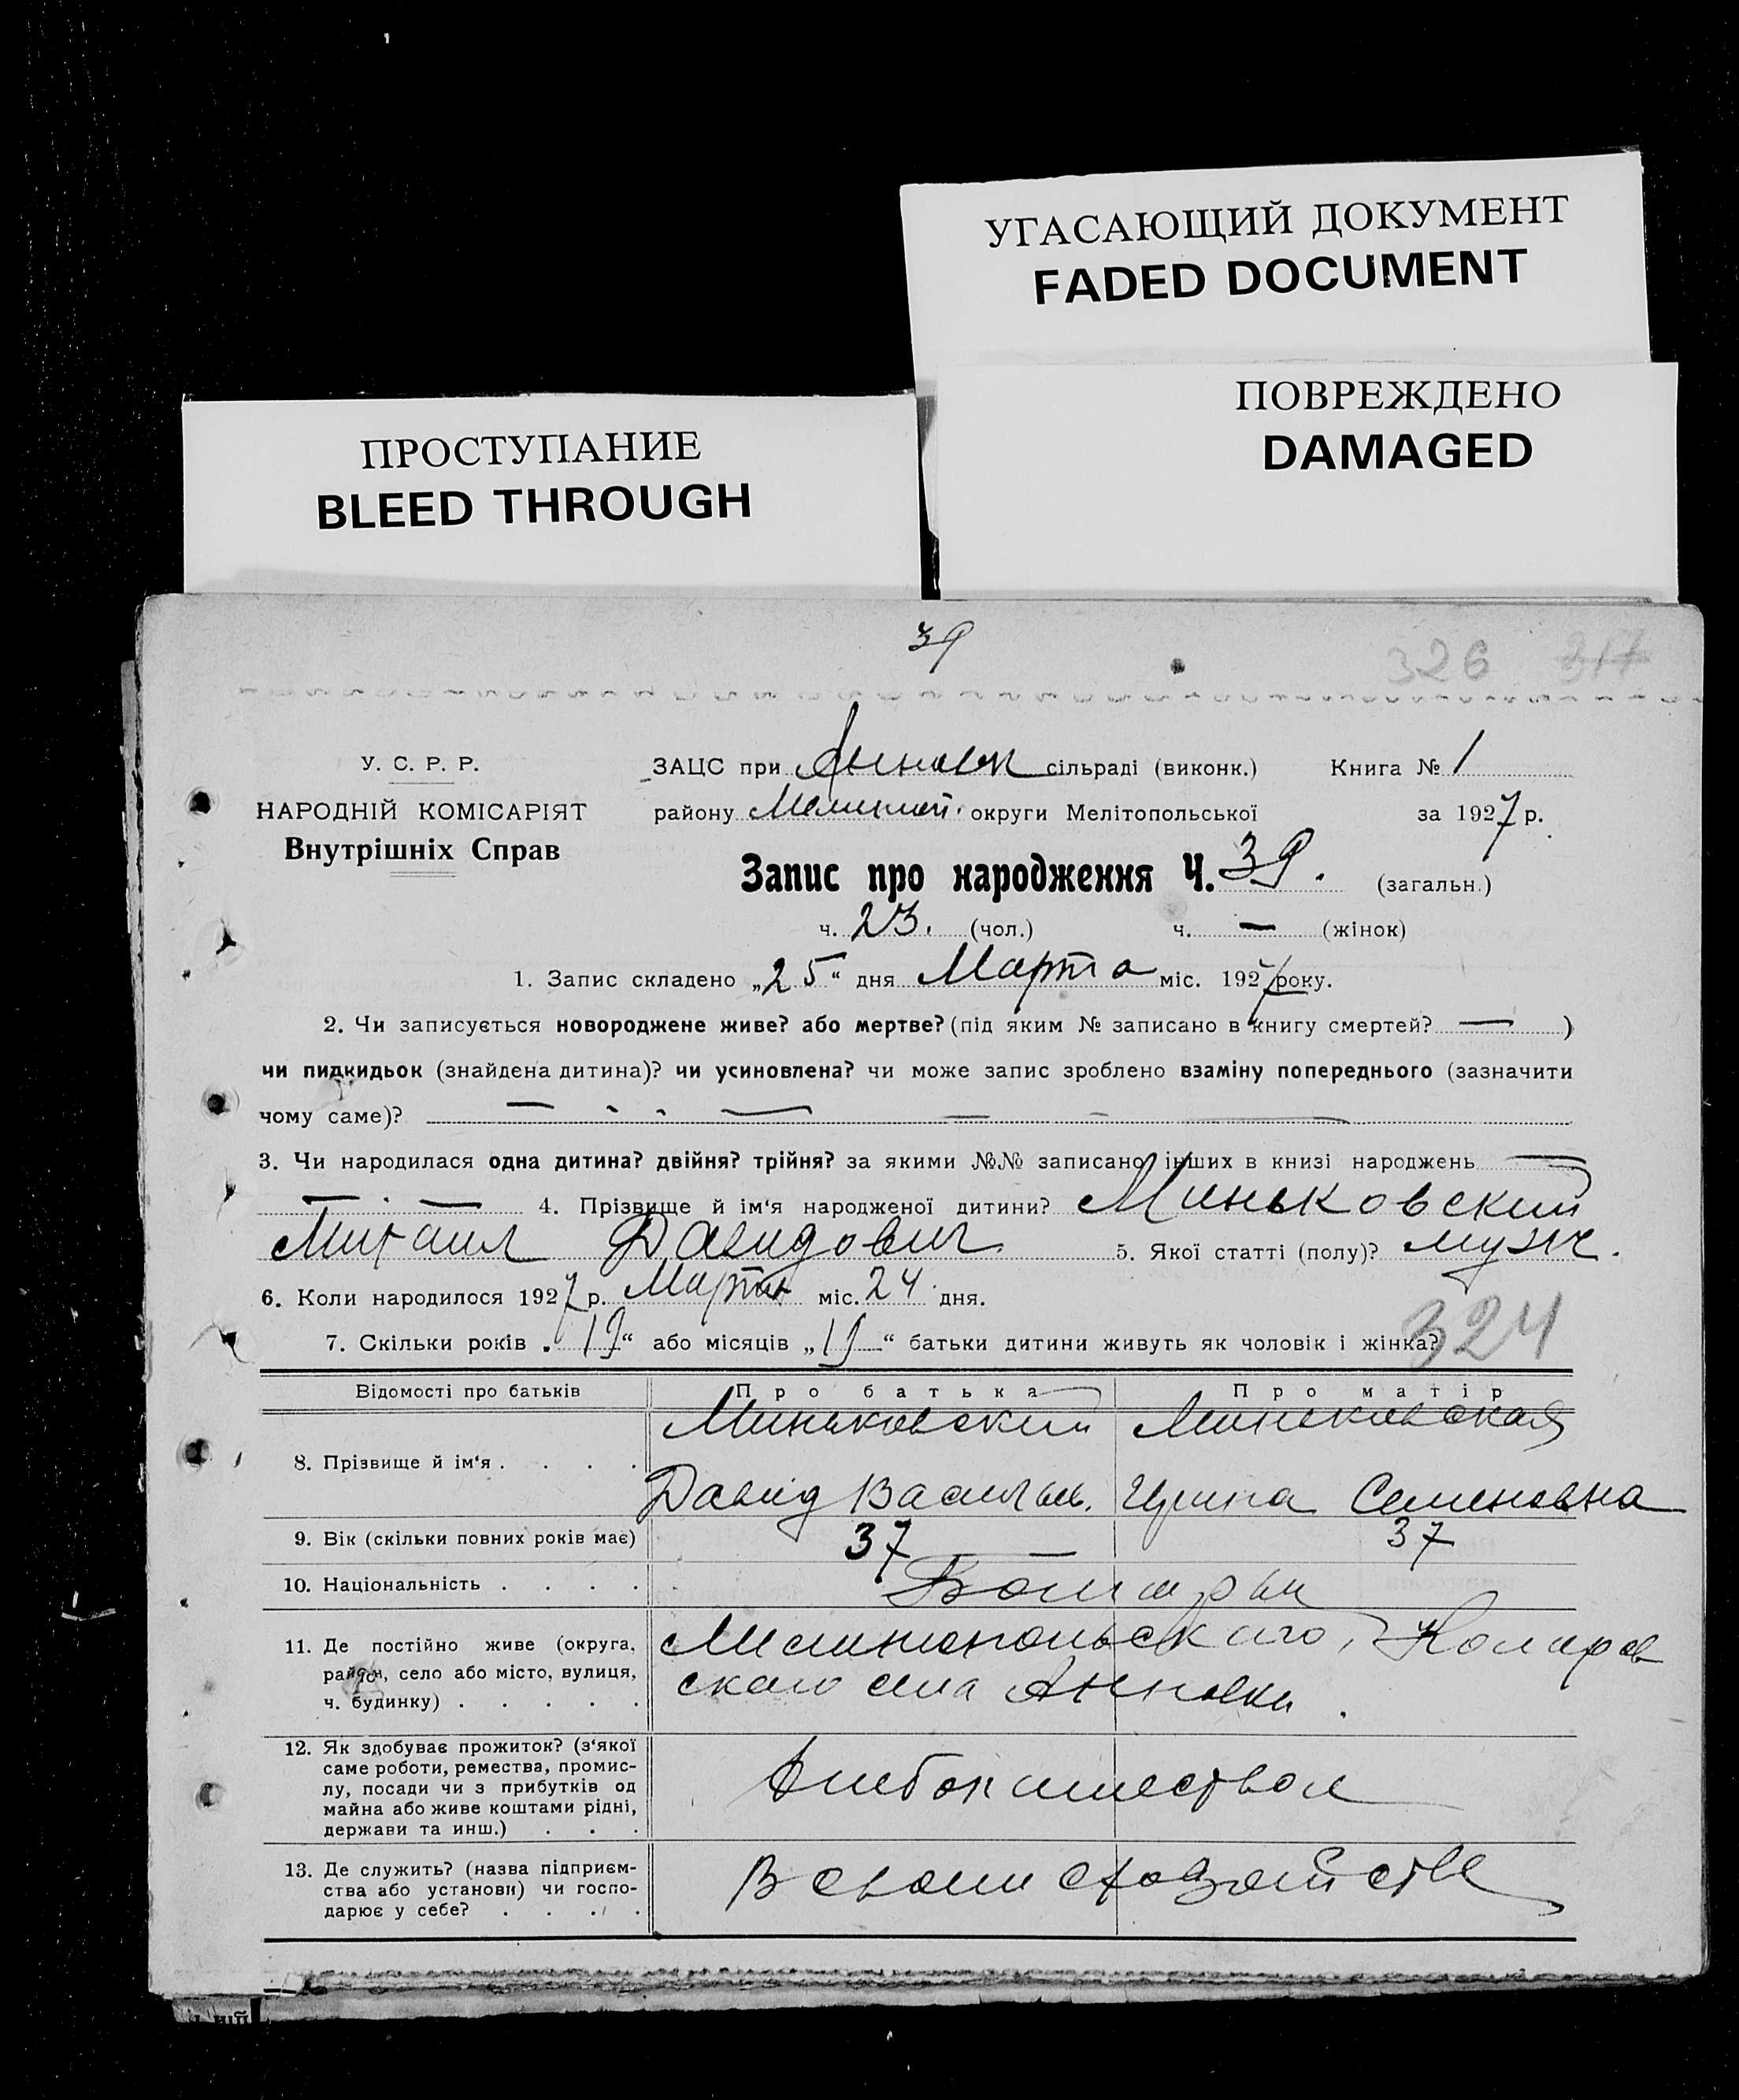 УГАСАЮЩИЙ ДОКУМЕНТ
FADED DOCUMENT
ПОВРЕЖДЕНО
DAMAGED
ПРОСТУПАНИЕ
BLEED THROUGH
39
326 317
У. С. Р. Р.
НАРОДНІЙ КОМІСАРІЯТ
Внутрішніх Справ
ЗАЦС при сільраді (виконк.) Книга № 1
району округи Мелітопольської за 1927 р.
Запис про народження Ч. 39. (загальн.)
ч. 23. (чол.) ч. — (жінок)
1. Запис складено „25“ дня Марта міс. 1927 року.
2. Чи записується новороджене живе? або мертве? (під яким № записано в книгу смертей? — )
чи пидкидьок (знайдена дитина)? чи усиновлена? чи може запис зроблено взаміну попереднього (зазначити
чому саме)?
3. Чи народилася одна дитина? двійня? трійня? за якими №№ записано інших в книзі народжень —
4. Прізвище й ім'я народженої дитини? Миньковский
Михаил Давидович 5. Якої статті (полу)? муж.
6. Коли народилося 1927 р. Марта міс. 24 дня.
7. Скільки років „19“ або місяців „19“ батьки дитини живуть як чоловік і жінка?
324
Відомості про батьків Про батька Про матір
Миньковский Миньковская
8. Прізвище й ім'я . . . . Давид Васильев. Ирина Семеновна
9. Вік (скільки повних років має) 37 37
10. Національність . . . .
11. Де постійно живе (округа, район, село або місто, вулиця, ч. будинку) . . . . .
Мелитопольского,
ского села Анновки.
12. Як здобуває прожиток? (з'якої саме роботи, ремества, промислу, посади чи з прибутків од майна або живе коштами рідні, держави та инш.) . . .
Хлебопашеством
13. Де служить? (назва підприємства або установи) чи господарює у себе? . . . .
В своем хозяйстве